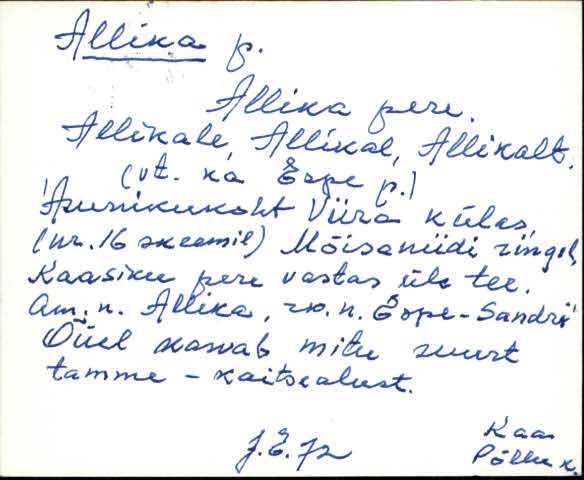 Allika p.
Allika pere.
Allikale, Allikal, Allikalt.
(vt. ka Eespe p.)
Asunikukoht Viira külas,
(nr. 16 skeemil) Mõisaniidi ringil,
Kaasiku pere vastas üle tee.
Am. n. Allika, rv. n. Eespe-Sandri
Õuel kasvab mitu suurt
tamme - kaitsealust.
J.E.
Kaa
Põllu k.